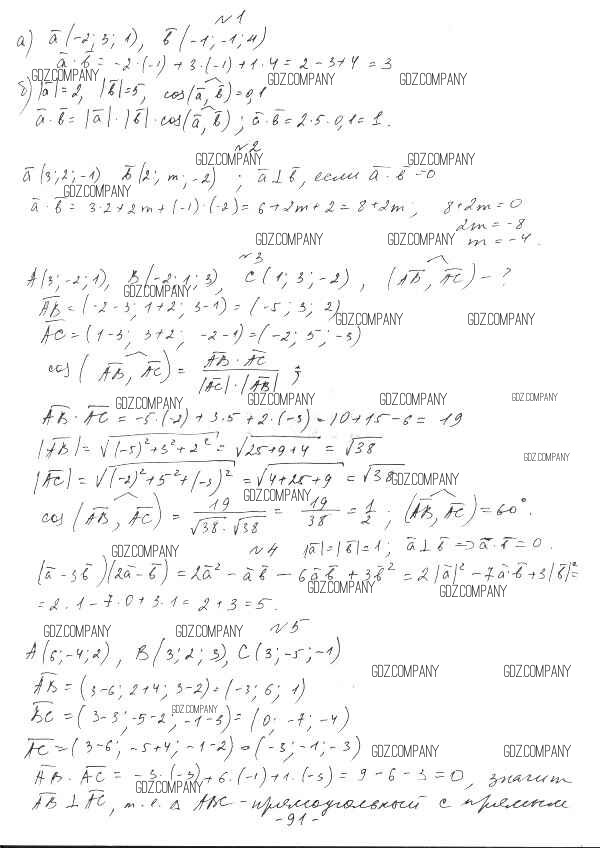 №1
а) a̅(-2; 3; 1), b̅(-1; -1; 4)
a̅·b̅ = -2·(-1) + 3·(-1) + 1·4 = 2 - 3 + 4 = 3
GDZ.COMPANY GDZ.COMPANY GDZ.COMPANY
б) |a̅| = 2, |b̅| = 5, cos(a̅, b̅) = 0,1
a̅·b̅ = |a̅|·|b̅|·cos(a̅, b̅); a̅·b̅ = 2·5·0,1 = 1.
№2
GDZ.COMPANY GDZ.COMPANY
a̅(3; 2; -1) b̅(2; m; -2); a̅⊥b̅, если a̅·b̅ = 0
GDZ.COMPANY
a̅·b̅ = 3·2 + 2m + (-1)·(-2) = 6 + 2m + 2 = 8 + 2m; 8 + 2m = 0
2m = -8
GDZ.COMPANY GDZ.COMPANY m = -4.
№3
A(3; -2; 1), B(-2; 1; 3), C(1; 3; -2), (A̅B̅, A̅C̅) - ?
GDZ.COMPANY
A̅B̅ = (-2-3; 1+2; 3-1) = (-5; 3; 2)
GDZ.COMPANY GDZ.COMPANY
A̅C̅ = (1-3; 3+2; -2-1) = (-2; 5; -3)
cos(A̅B̅, A̅C̅) = A̅B̅·A̅C̅ / |A̅C̅|·|A̅B̅|;
GDZ.COMPANY GDZ.COMPANY GDZ.COMPANY GDZ.COMPANY
A̅B̅·A̅C̅ = -5·(-2) + 3·5 + 2·(-3) = 10 + 15 - 6 = 19
|A̅B̅| = √((-5)²+3²+2²) = √(25+9+4) = √38
GDZ.COMPANY
|A̅C̅| = √((-2)²+5²+(-3)²) = √(4+25+9) = √38
GDZ.COMPANY
GDZ.COMPANY
cos(A̅B̅, A̅C̅) = 19/(√38·√38) = 19/38 = 1/2; (A̅B̅, A̅C̅) = 60°.
GDZ.COMPANY №4 |a̅| = |b̅| = 1; a̅⊥b̅ => a̅·b̅ = 0.
(a̅ - 3b̅)(2a̅ - b̅) = 2a̅² - a̅b̅ - 6a̅b̅ + 3b̅² = 2|a̅|² - 7a̅·b̅ + 3|b̅|² =
GDZ.COMPANY GDZ.COMPANY
= 2·1 - 7·0 + 3·1 = 2 + 3 = 5.
№5
GDZ.COMPANY GDZ.COMPANY GDZ.COMPANY
A(6; -4; 2), B(3; 2; 3), C(3; -5; -1)
GDZ.COMPANY GDZ.COMPANY
A̅B̅ = (3-6; 2+4; 3-2) = (-3; 6; 1)
GDZ.COMPANY
B̅C̅ = (3-3; -5-2; -1-3) = (0; -7; -4)
A̅C̅ = (3-6; -5+4; -1-2) = (-3; -1; -3)
GDZ.COMPANY GDZ.COMPANY
A̅B̅·A̅C̅ = -3·(-3) + 6·(-1) + 1·(-3) = 9 - 6 - 3 = 0, значит
GDZ.COMPANY
A̅B̅⊥A̅C̅, т.е. △ABC - прямоугольный с прямым
-91-